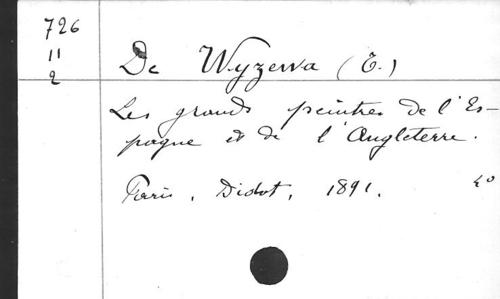 726
11
2
De Wyzewa (T.)
Les grands peintres de l'Es-
pagne et de l'Angleterre.
Paris, Didot, 1891. 4o